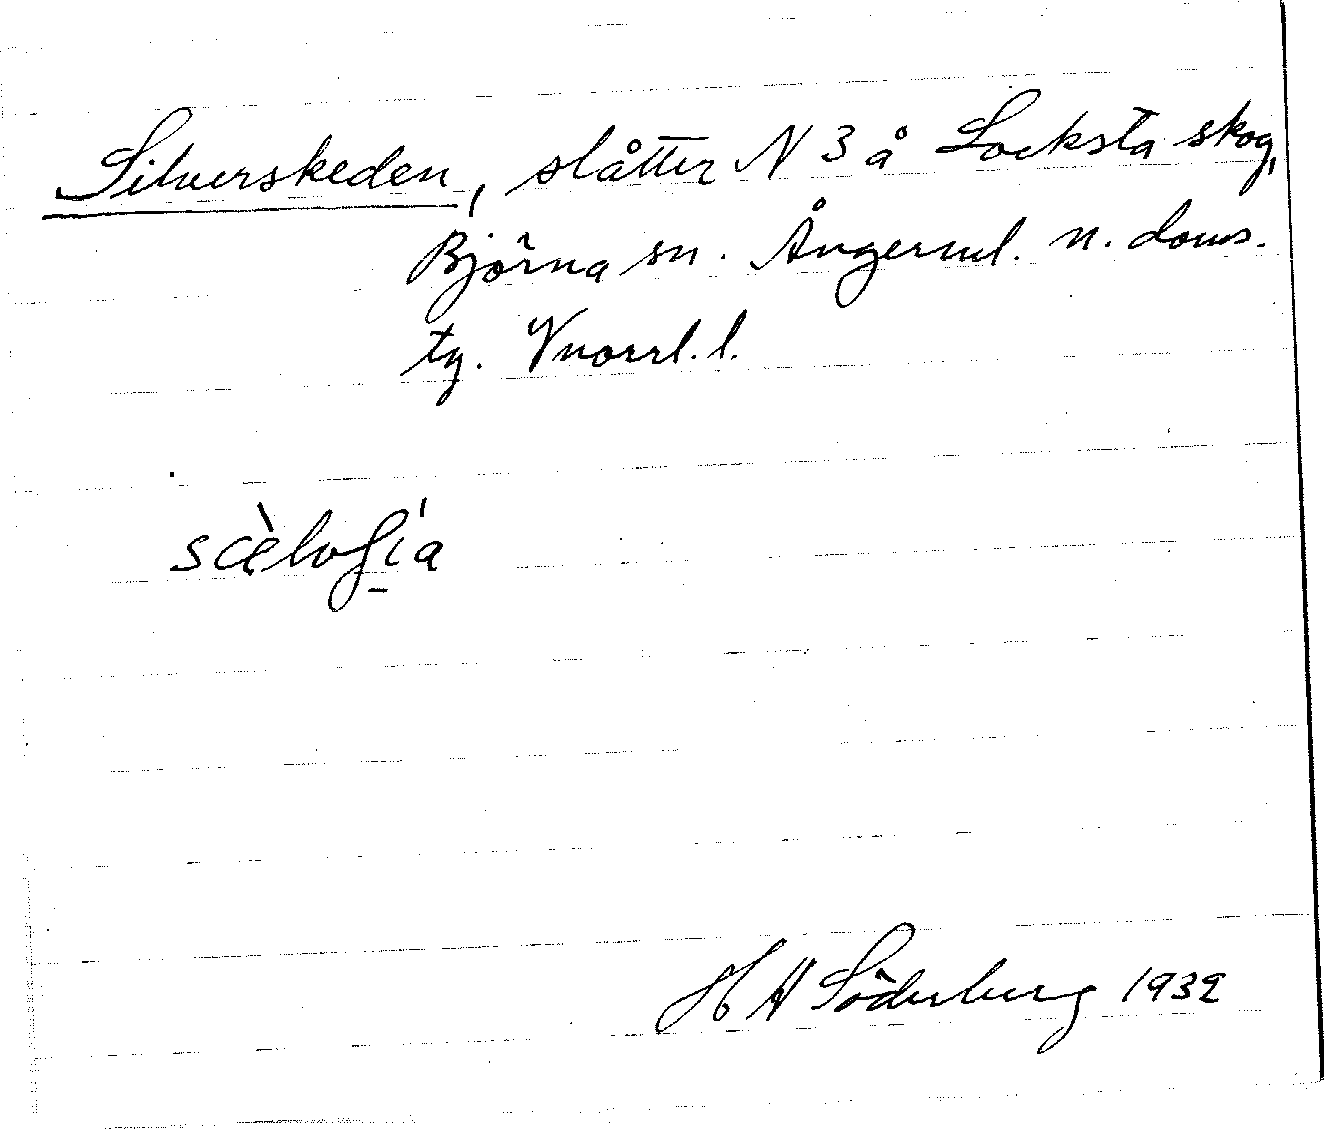 Silverskeden, slåtter N 3 å Locksta skog,
Björna sn. Ångerml. n. doms.
tg. Vnorrl. l.
H H Söderberg 1932